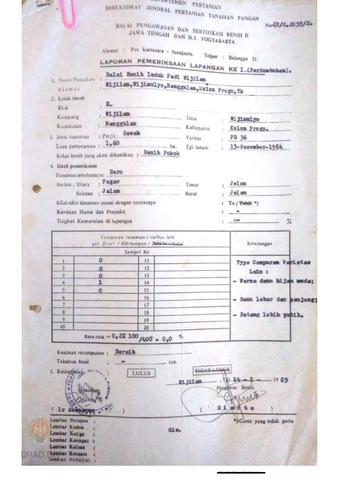 DEPARTEMEN PERTANIAN
DIREKTORAT JENDRAL PERTANIAN TANAMAN PANGAN
BALAI PENGAWASAN DAN SERTIFIKASI BENIH II
JAWA TENGAH DAN D.I. YOGYAKARTA
LAPORAN PEMERIKSAAN LAPANGAN KE I.(Pertumbuhan).
1. Nama Penulian : Balai Benih Induk Padi Wijilam
Alamat : Wijilam, Wijimulyo, Nanggulan, Kulon Progo, Yk
2. Letak tanah
Blok : E.
Kampung : Wijilam Desa : Wijimulyo
Kecamatan : Nanggulan Kabupaten : Kulon Progo.
3. Jenis tanaman : PADI Sawah Varitas : PB 36
Luas pertanaman : 1,60 ha. Tgl. tanam : 15-Desember-1984
Kelas benih yang akan dihasilkan : Benih Pokok
4. Hasil pemeriksaan
Tanaman sebelumnya : Bero
Isolasi ; Utara : Pagar Timur : Jalan
Selatan : Jalan Barat : Jalan
Sifat-sifat tanaman sesuai dengan varitasnya : Ya / Tidak *)
Keadaan Hama dan Penyakit : -
Tingkat Kemurnian di lapangan : - %
Campuran tanaman / varitas lain
Sampel Ke
Keterangan
1 0 11
2 0 12
3 0 13
4 1 14
5 0 15
6 16
7 17
8 18
9 19
10 20
Type Campuran Varietas
Lain :
- Warna daun hijau muda;
- Daun lebar dan panjang;
- Batang lebih putih.
Rata-rata = 0,2X 100 /400 = 0,0 %
Keadaan rerumputan : Bersih
Taksiran hasil : - ton.
5. Kesimpulan : LULUS TIDAK LULUS
Wijilam, 14 - 1 - 1985
Pengawas Benih
*) Coret yang tidak perlu
Lembar Pertama :
Lembar Kedua :
Lembar Ketiga :
Lembar Keempat :
Lembar Kelima :
Lembar Keenam :
DPAD